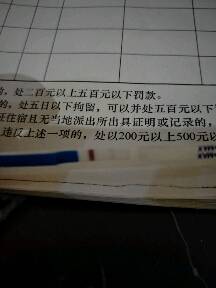 的，处二百元以上五百元以下罚款。
的，处五日以下拘留，可以并处五百元以下
住宿且无当地派出所出具证明或记录的，
违反上述一项的，处以200元以上500元以